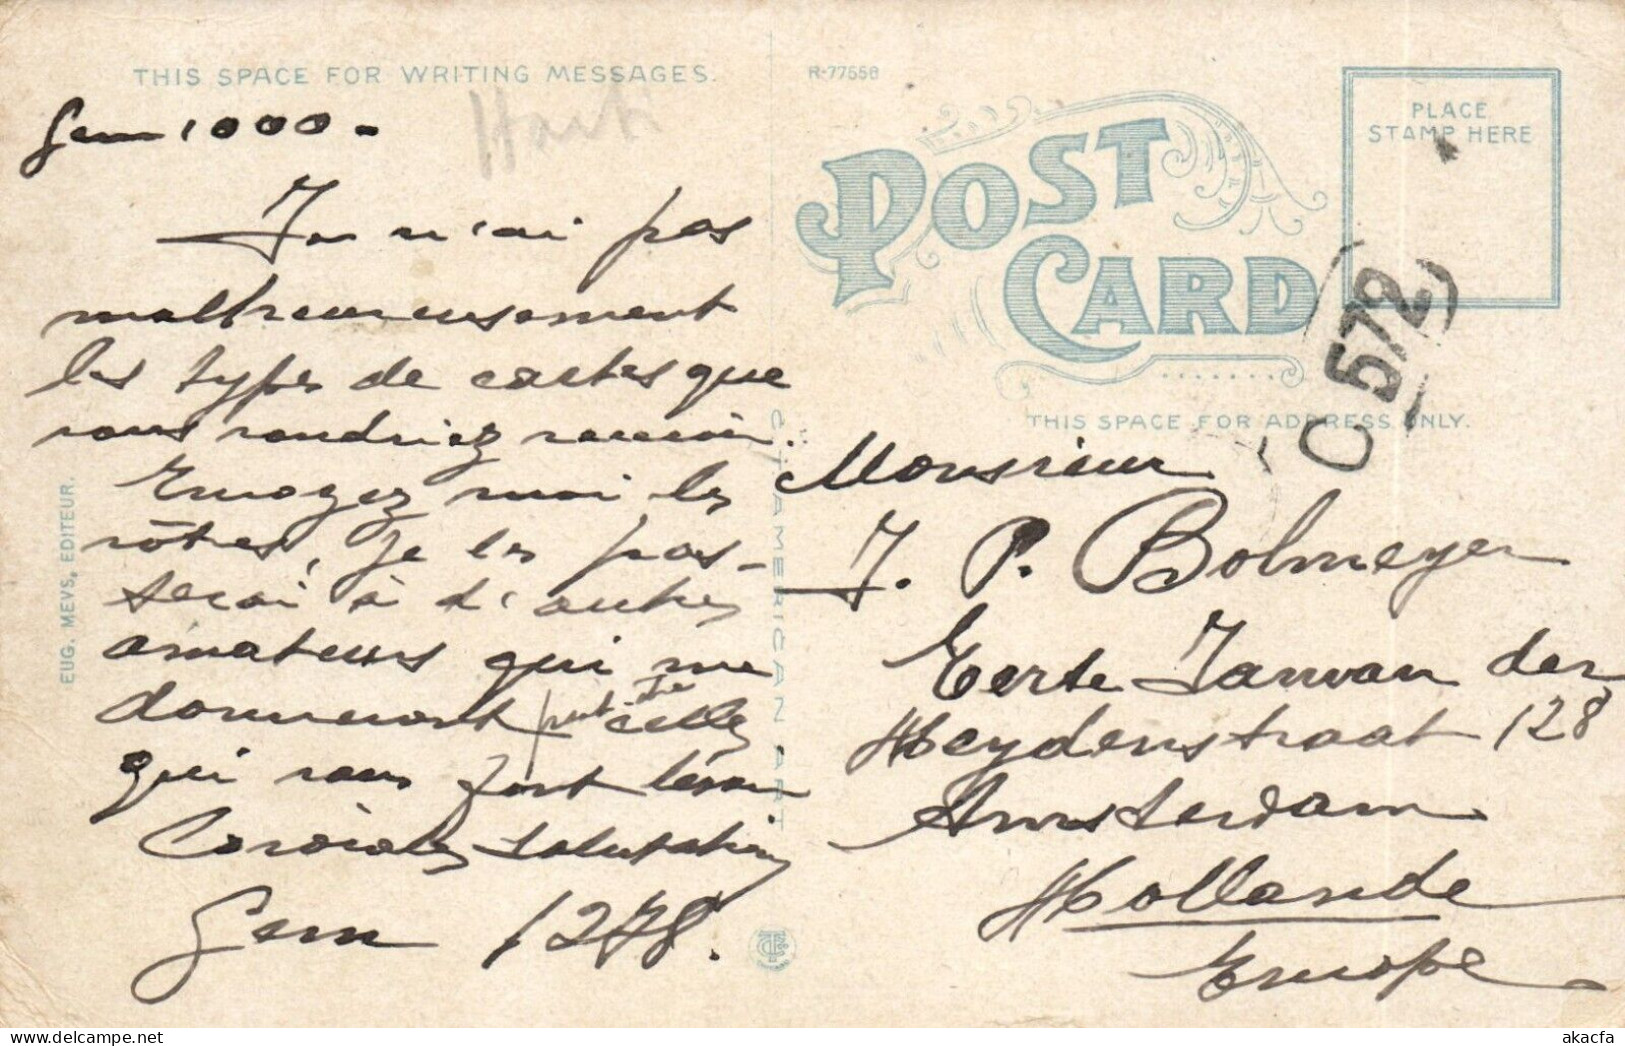 THIS SPACE FOR WRITING MESSAGES.
R-77558
Gem 1000-
Haiti
Je n'ai pas
malheureusement
les types de cartes que
vous voudriez recevoir.
Envoyez moi les
vôtres, je les pas-
serai à d'autres
amateurs qui me
donneront peut-être celles
qui vous font besoin
Cordiales salutations
Gem 1278.
EUG. MEVS, EDITEUR.
C.T. AMERICAN ART
POST CARD
PLACE
STAMP HERE
C 572
THIS SPACE FOR ADDRESS ONLY.
Monsieur
J. P. Bolmeyer
Eerste Jan van der
Heydenstraat 128
Amsterdam
Hollande
Europe
akacfa